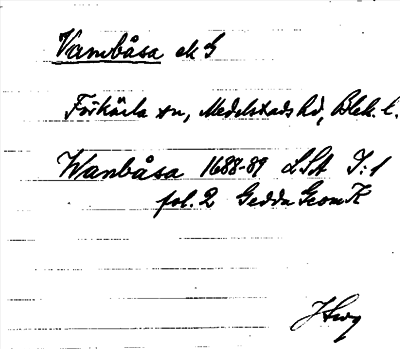 Vambåsa ek G
Förkärla sn, Medelstads hd, Blek. l.
Wanbåsa 1688-89 LSA I:1
fol. 2 Gedda Geom K